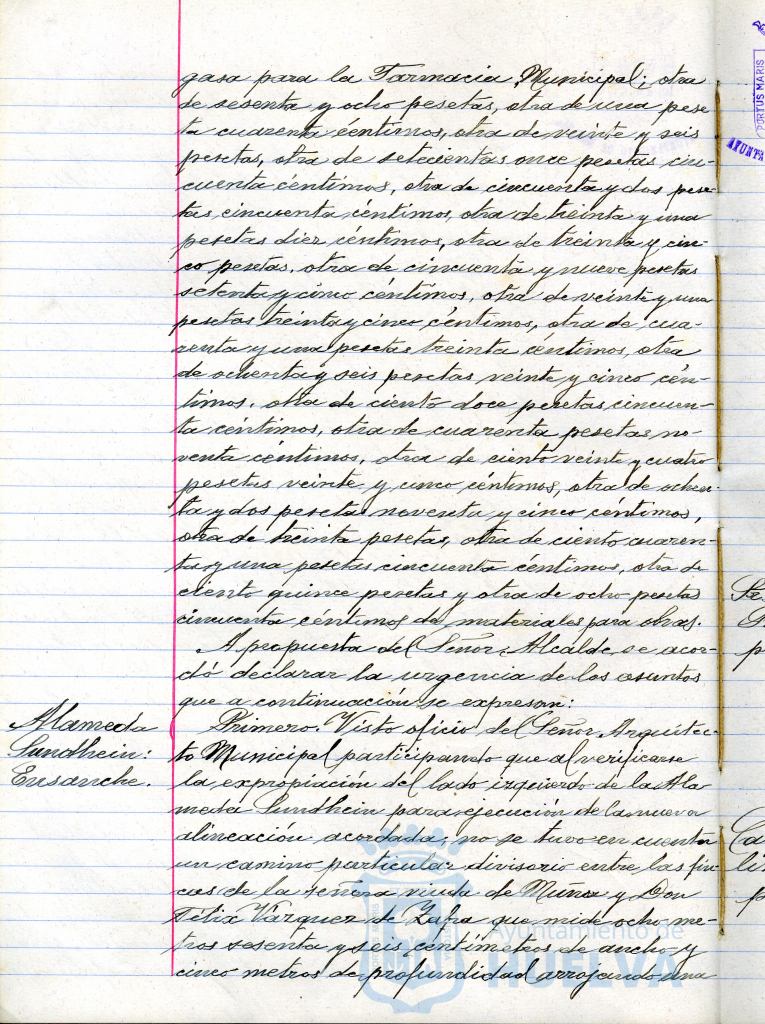 gasa para la Farmacia Municipal; otra
de sesenta y ocho pesetas, otra de una pese
ta cuarenta céntimos, otra de veinte y seis
pesetas, otra de setecientas once pesetas cin-
cuenta céntimos, otra de cincuenta y dos pese-
tas cincuenta céntimos, otra de treinta y una
pesetas diez céntimos, otra de treinta y cin-
co pesetas, otra de cincuenta y nueve pesetas
setenta y cinco céntimos, otra de veinte y una
pesetas treinta y cinco céntimos, otra de cua-
renta y una pesetas treinta céntimos, otra
de ochenta y seis pesetas veinte y cinco cén-
timos, otra de ciento doce pesetas cincuen-
ta céntimos, otra de cuarenta pesetas no-
venta céntimos, otra de ciento veinte y cuatro
pesetas veinte y cinco céntimos, otra de ochen-
ta y dos peseta noventa y cinco céntimos,
otra de treinta pesetas, otra de ciento cuaren-
ta y una pesetas cincuenta céntimos, otra de
ciento quince pesetas y otra de ocho pesetas
cincuenta céntimos de materiales para obras.
A propuesta del Señor Alcalde, se acor-
dó declarar la urgencia de los asuntos
que a continuación se expresan:
Alameda
Sundhein:
Ensanche.
Primero. Visto oficio del Señor Arquitec-
to Municipal participando que al verificarse
la expropiación del lado izquierdo de la Ala
meda Sundhein para ejecución de la nueva
alineación acordada, no se tuvo en cuenta
un camino particular divisorio entre las fin-
cas de la señora viuda de Muñoz y Don
Félix Vázquez de Zafra que mide ocho me-
tros sesenta y seis centímetros de ancho y
cinco metros de profundidad arrojando una
PORTUS MARIS
AYUNTA
Ayuntamiento de
HUELVA